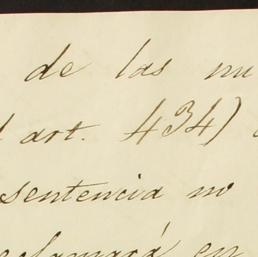 de las
art. 434)
sentencia no
en